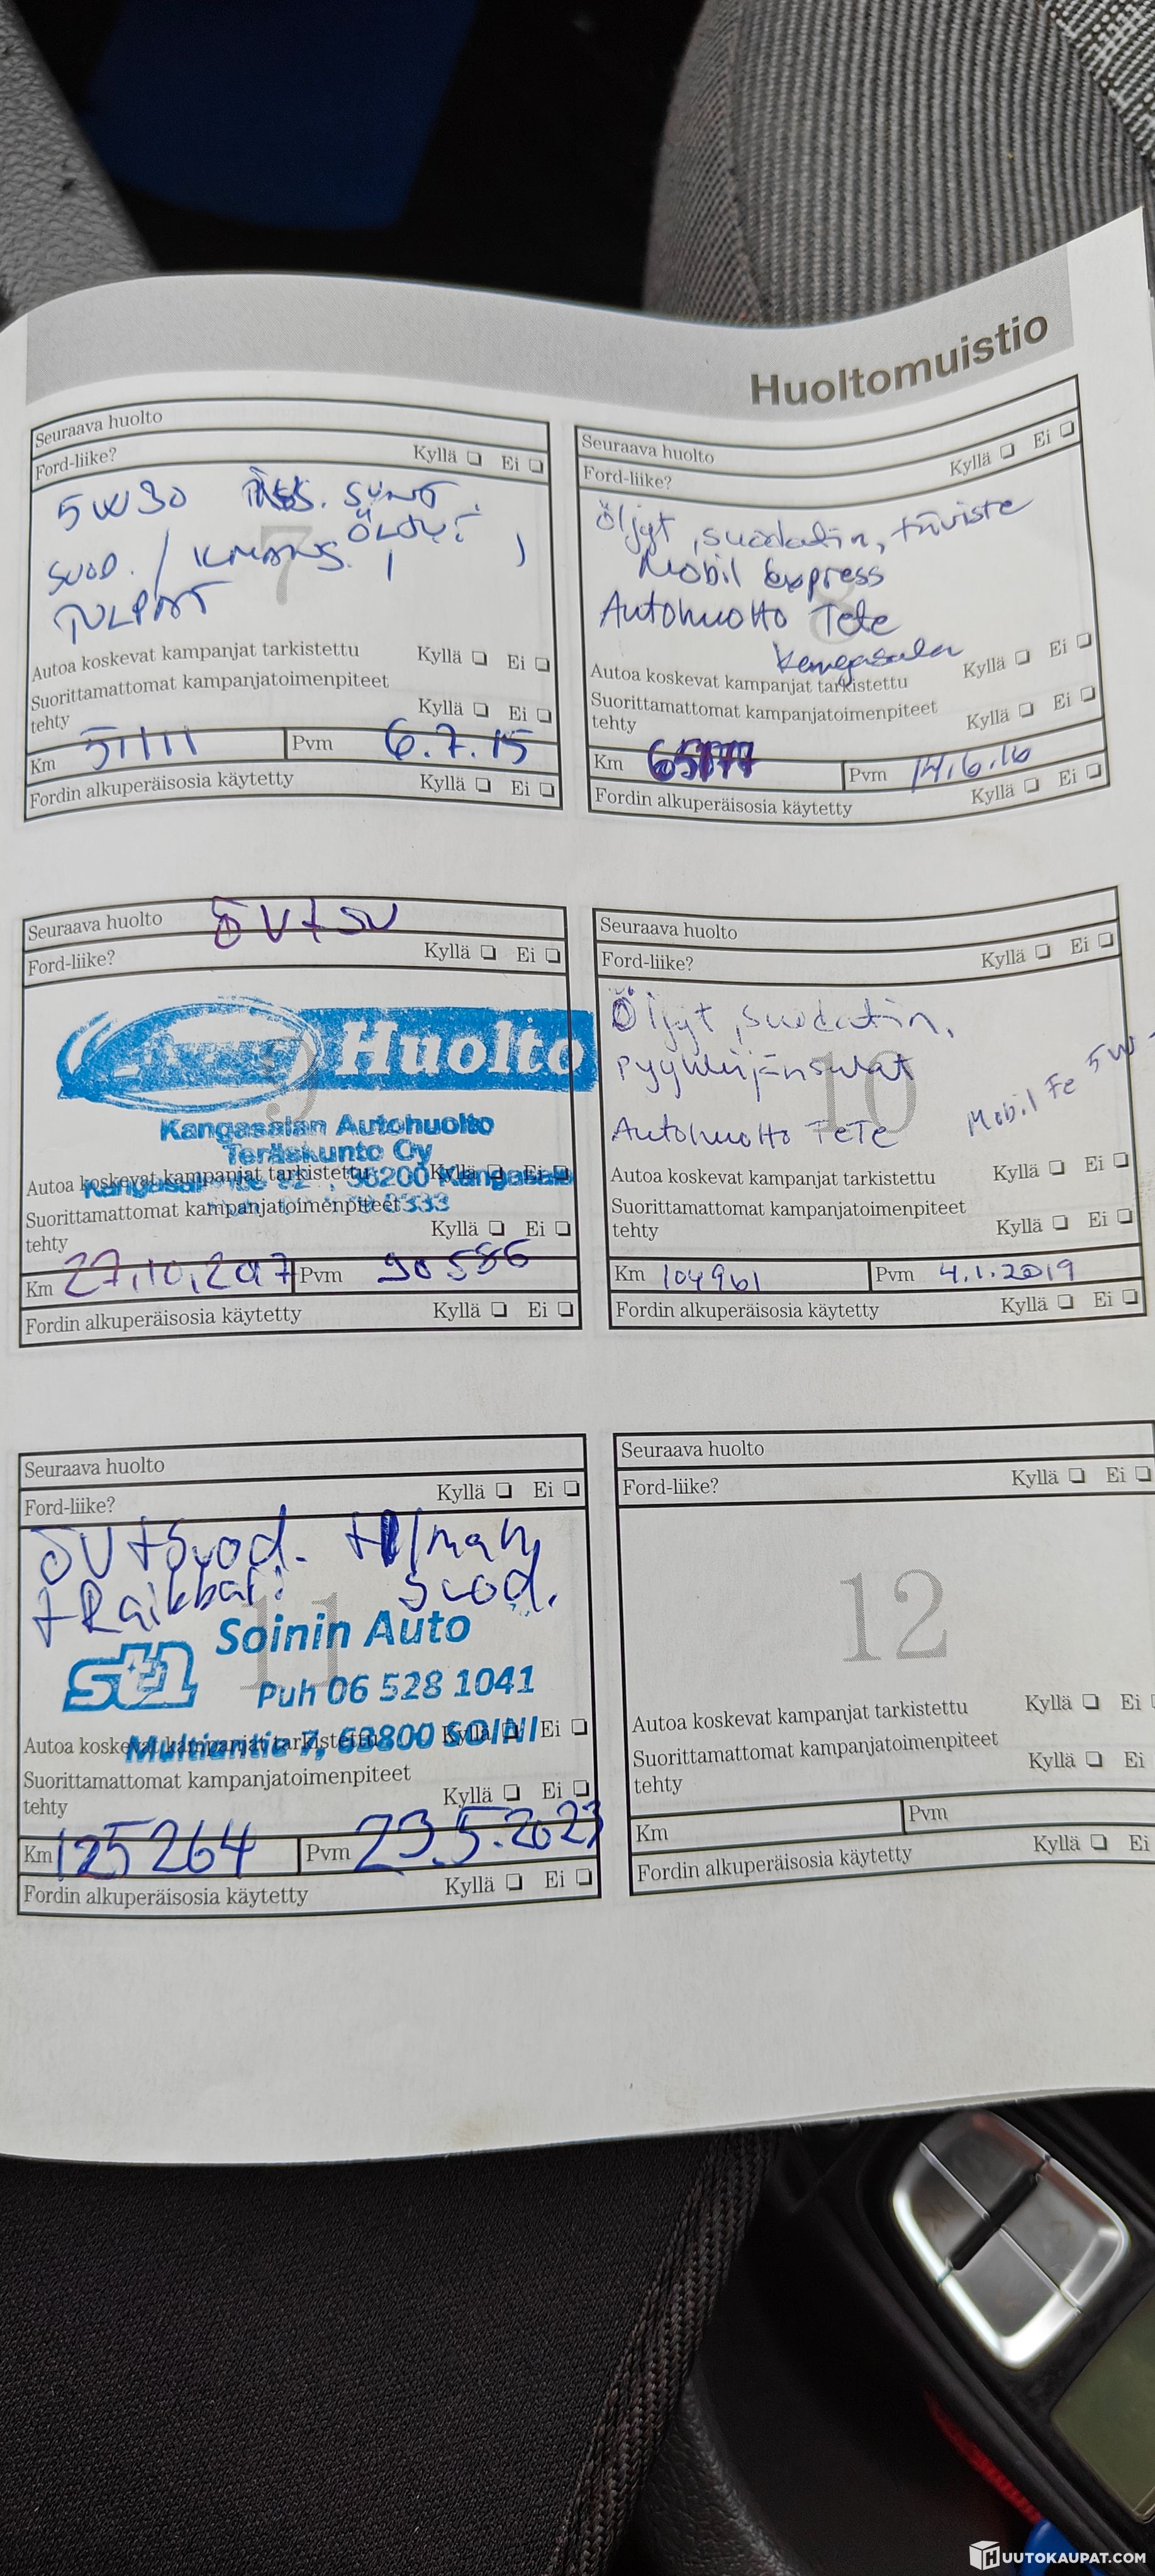 Huoltomuistio
Seuraava huolto
Ford-liike? Kyllä Ei
5W30 TÄSS. SYNT.
ÖLJY
SUOD. / ILMANS.
TULPAT
7
Autoa koskevat kampanjat tarkistettu Kyllä Ei
Suorittamattomat kampanjatoimenpiteet
tehty Kyllä Ei
Km 51111 Pvm 6.7.15
Fordin alkuperäisosia käytetty Kyllä Ei
Seuraava huolto
Ford-liike? Kyllä Ei
Öljyt, suodatin, tiiviste
Mobil express
Autohuolto Tete
Kangasala
8
Autoa koskevat kampanjat tarkistettu Kyllä Ei
Suorittamattomat kampanjatoimenpiteet
tehty Kyllä Ei
Km Pvm 14.6.16
Fordin alkuperäisosia käytetty Kyllä Ei
Seuraava huolto ÖV+SU
Ford-liike? Kyllä Ei
Huolto
9
Kangasalan Autohuolto
Teräskunto Oy
36200 Kangasala
Autoa koskevat kampanjat tarkistettu Kyllä Ei
Suorittamattomat kampanjatoimenpiteet
tehty Kyllä Ei
Km 27.10.2017 Pvm 90586
Fordin alkuperäisosia käytetty Kyllä Ei
Seuraava huolto
Ford-liike? Kyllä Ei
Öljyt, suodatin,
pyyhkijänsulat
Autohuolto TeTe
Mobil Fe 5W-
10
Autoa koskevat kampanjat tarkistettu Kyllä Ei
Suorittamattomat kampanjatoimenpiteet
tehty Kyllä Ei
Km 104961 Pvm 4.1.2019
Fordin alkuperäisosia käytetty Kyllä Ei
Seuraava huolto
Ford-liike? Kyllä Ei
ÖV+Suod. +Ilman
suod.
+Raikbari
11
st1 Soinin Auto
Puh 06 528 1041
Multiantie 7, 63800 SOINI
Autoa koskevat kampanjat tarkistettu Kyllä Ei
Suorittamattomat kampanjatoimenpiteet
tehty Kyllä Ei
Km 125264 Pvm 23.5.2023
Fordin alkuperäisosia käytetty Kyllä Ei
Seuraava huolto
Ford-liike? Kyllä Ei
12
Autoa koskevat kampanjat tarkistettu Kyllä Ei
Suorittamattomat kampanjatoimenpiteet
tehty Kyllä Ei
Km Pvm
Fordin alkuperäisosia käytetty Kyllä Ei
HUUTOKAUPAT.COM